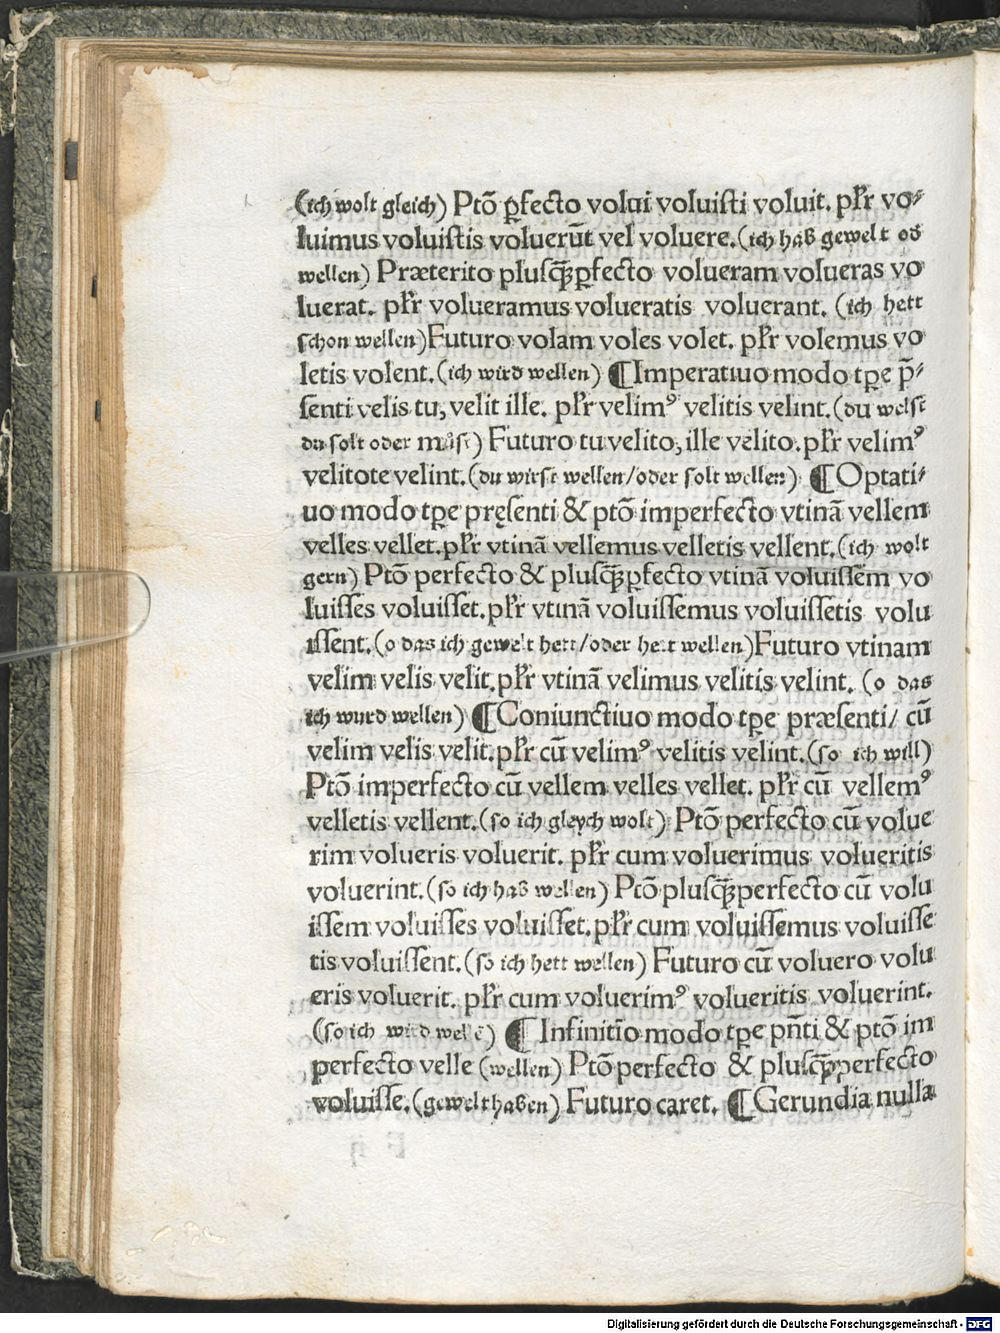 (ich wolt gleich) Ptō ꝑfecto volui voluiſti voluit. pl̄r vo⸗
luimus voluiſtis voluerūt vel voluere.(ich hab gewelt od
wellen) Præterito pluſꝗ̄ꝑfecto volueram volueras vo
luerat. pl̄r volueramus volueratis voluerant. (ich hett
ſchon wellen)Futuro volam voles volet. pl̄r volemus vo
letis volent.(ich wird wellen) ¶Imperatiuo modo tꝑe p̄⸗
ſenti velis tu, velit ille. pl̄r velimꝰ velitis velint.(du welſt
du ſolt oder muͤſt) Futuro tu velito, ille velito.pl̄r velimꝰ
velitote velint.(du wirſt wellen/oder ſolt wellen) ¶Optati⸗
uo modo tꝑe pręſenti & ptō imperfecto vtinā vellem
velles vellet.pl̄r vtinā vellemus velletis vellent.(ich wolt
gern) Ptō perfecto & pluſꝗ̄ꝑfecto vtinā voluiſſem vo
luiſſes voluiſſet.pl̄r vtinā voluiſſemus voluiſſetis volu
iſſent.(o das ich gewelt hett/oder hett wellen)Futuro vtinam
velim velis velit.pl̄r vtinā velimus velitis velint. (o das
ich wurd wellen) ¶Coniunctiuo modo tꝑe præſenti/ cū
velim velis velit.pl̄r cū velimꝰ velitis velint.(so ich will)
Ptō imperfecto cū vellem velles vellet. pl̄r cū vellemꝰ
velletis vellent.(so ich gleych wolt) Ptō perfecto cū volue
rim volueris voluerit. pl̄r cum voluerimus volueritis
voluerint.(so ich hab wellen) Ptō pluſꝗ̄perfecto cū volu
iſſem voluiſſes voluiſſet.pl̄r cum voluiſſemus voluiſſe
tis voluiſſent.(so ich hett wellen) Futuro cū voluero volu
eris voluerit. pl̄r cum voluerimꝰ volueritis voluerint.
(so ich wird wellē) ¶ Infinitio modo tꝑe pn̄ti & ptō im
perfecto velle (wellen) Ptō perfecto & pluſꝗ̄perfecto
voluiſſe.(gewelt haben) Futuro caret. ¶Gerundia nulla
Digitalisierung gefördert durch die Deutsche Forschungsgemeinschaft - DFG